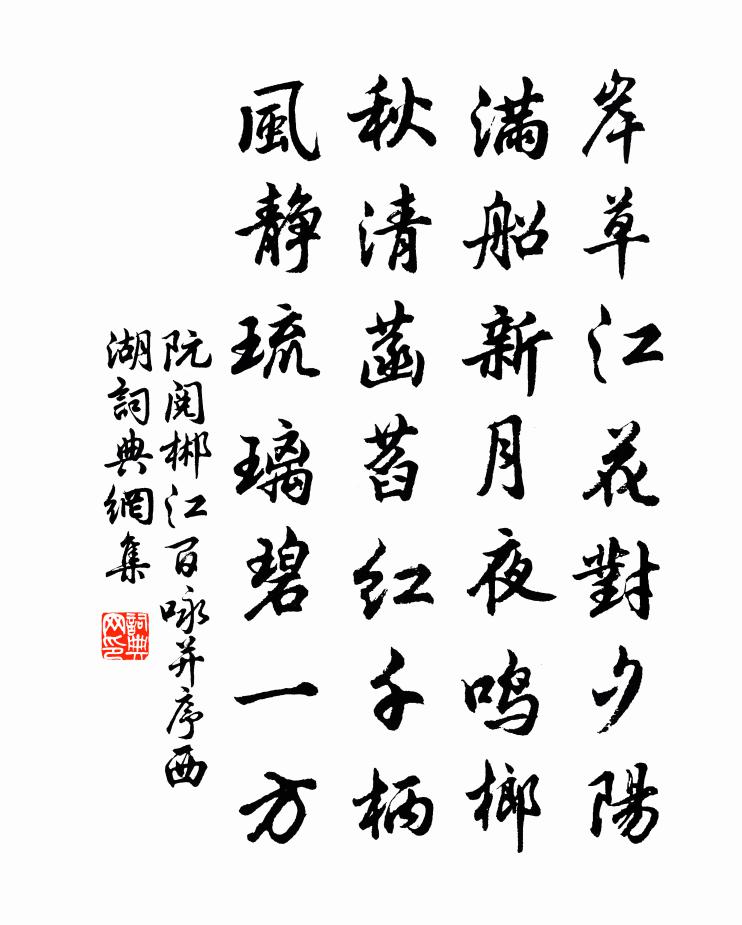 岸草江花對夕陽
滿船新月夜鸣榔
秋清菡萏红千柄
風静琉璃碧一方
阮阅郴江百咏并序西
湖詞典網集
詞典网印